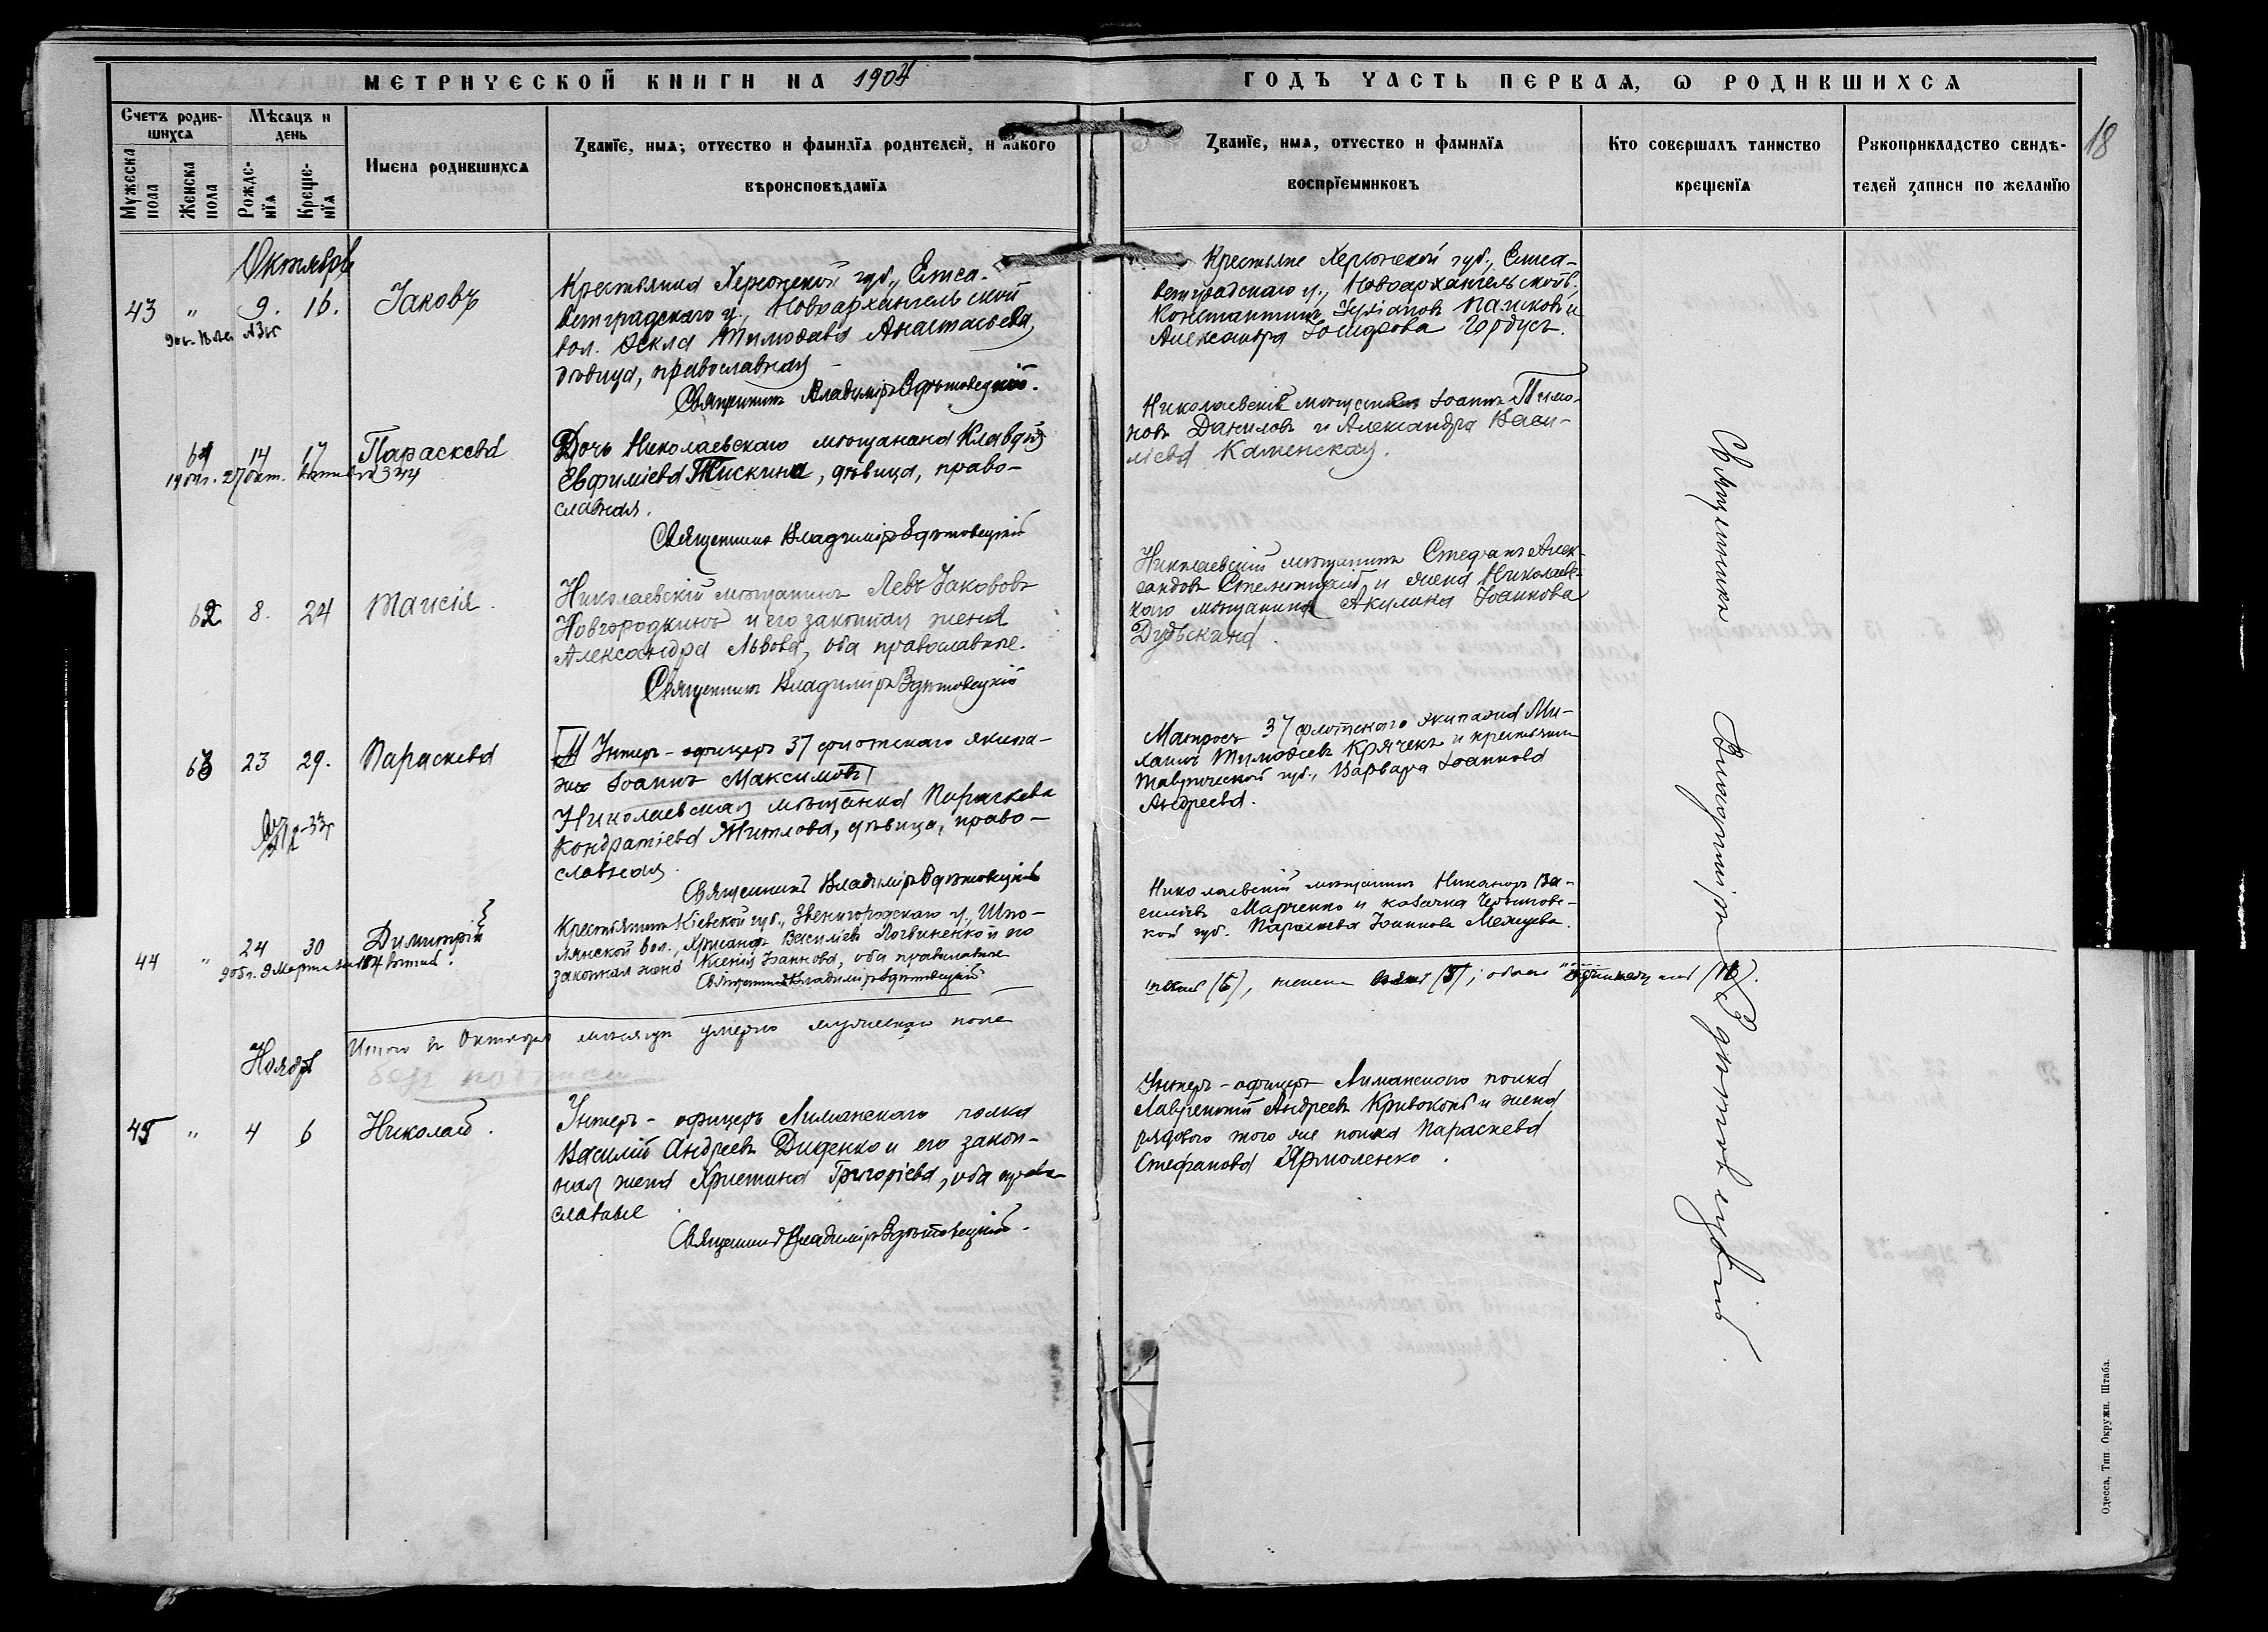 МЕТРИЧЕСКОЙ КНИГИ НА 1904
ГОДЪ ЧАСТЬ ПЕРВАЯ, Ѡ РОДИВШИХСЯ
18
Счетъ родив-
шихся
Мѣсяцъ и
день
Мужеска
пола
Женска
пола
Рожде-
нїя
Креще-
нїя
Имена родившихся
Званїе, имя, отчество и фамилїя родителей, и какого
вѣроисповѣданїя
Званїе, имя, отчество и фамилїя
воспрїемниковъ
Кто совершалъ таинство
крещенїя
Рукоприкладство свидѣ-
телей записи по желанїю
Октябрь
43 " 9. 16. Іаковъ
Крестьянка Херсонской губ., Елиса-
ветградскаго у., Новоархангельской
вол. Ѳекла Тимоѳеева Анастасьева,
дѣвица, православная
Священникъ Владиміръ Здѣтовецкій.
Крестьяне Херсонской губ., Елиса-
ветградскаго у., Новоархангельской в.,
Константинъ Іуліановъ Пашковъ и
Александра Іосифова Гордусъ.
61 14 17 Параскева
Дочь Николаевскаго мѣщанина Клавдія
Евфиміева Тискина, дѣвица, право-
славная.
Священникъ Владиміръ Здѣтовецкій
Николаевскій мѣщанинъ Іоаннъ Тимо-
новъ Даниловъ и Александра Васи-
ліева Каменская.
62 8. 24 Таисія.
Николаевскій мѣщанинъ Левъ Іаковъ
Новгородкинъ и его законная жена
Александра Львова, оба православные.
Священникъ Владиміръ Здѣтовецкій
Николаевскій мѣщанинъ Стефанъ Алек-
сандовъ и жена Николаевс-
каго мѣщанина Акилина Іоаннова
Дудкина.
63 23 29. Параскева
Унтеръ-офицеръ 37 флотскаго экипа-
жа Іоаннъ Максимовъ
Николаевская мѣщанка Параскева
Кондратіева Титлова, дѣвица, право-
славная.
Священникъ Владиміръ Здѣтовецкій
Матросъ 37 флотскаго экипажа Ми-
хаилъ Тимоѳеевъ Крячекъ и крестьянка
Таврической губ., Варвара Іоаннова
Андреева.
44 " 24 30 Димитрій
Крестьянинъ Кіевской губ., Звенигородскаго у., Шпо-
лянской вол., Василіевъ Логвиненко и его
законная жена Ксенія Іоаннова, оба православные
Священникъ Владиміръ Здѣтовецкій
Николаевскій мѣщанинъ Никаноръ Ва-
силіевъ Марченко и казачка Чернигов-
ской губ. Параскева Іоаннова
Итого въ Октябрѣ мѣсяцѣ умерло мужеска пола
Ноябрь
45 " 4 6 Николай.
Унтеръ-офицеръ Лиманскаго полка
Василій Андреевъ Диденко и его закон-
ная жена Христина Григоріева, оба право-
славные
Священникъ Владиміръ Здѣтовецкій.
Унтеръ-офицеръ Лиманскаго полка
Лаврентій Андреевъ Кривоконь и жена
рядового того же полка Параскева
Стефанова Ярмоленко.
Священникъ Владиміръ Здѣтовецкій
Одесса, Тип. Окружн. Штаба.